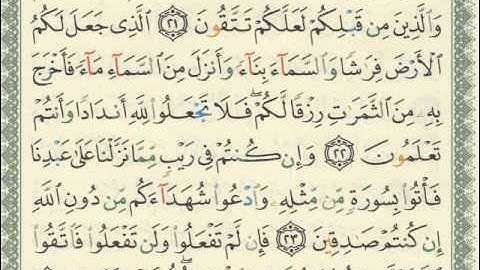 وَٱلَّذِينَ مِن قَبْلِكُمْ لَعَلَّكُمْ تَتَّقُونَ ٢١ ٱلَّذِى جَعَلَ لَكُمُ
ٱلْأَرْضَ فِرَٰشًا وَٱلسَّمَآءَ بِنَآءً وَأَنزَلَ مِنَ ٱلسَّمَآءِ مَآءً فَأَخْرَجَ
بِهِۦ مِنَ ٱلثَّمَرَٰتِ رِزْقًا لَّكُمْ ۖ فَلَا تَجْعَلُوا۟ لِلَّهِ أَندَادًا وَأَنتُمْ
تَعْلَمُونَ ٢٢ وَإِن كُنتُمْ فِى رَيْبٍ مِّمَّا نَزَّلْنَا عَلَىٰ عَبْدِنَا
فَأْتُوا۟ بِسُورَةٍ مِّن مِّثْلِهِۦ وَٱدْعُوا۟ شُهَدَآءَكُم مِّن دُونِ ٱللَّهِ
إِن كُنتُمْ صَٰدِقِينَ ٢٣ فَإِن لَّمْ تَفْعَلُوا۟ وَلَن تَفْعَلُوا۟ فَٱتَّقُوا۟